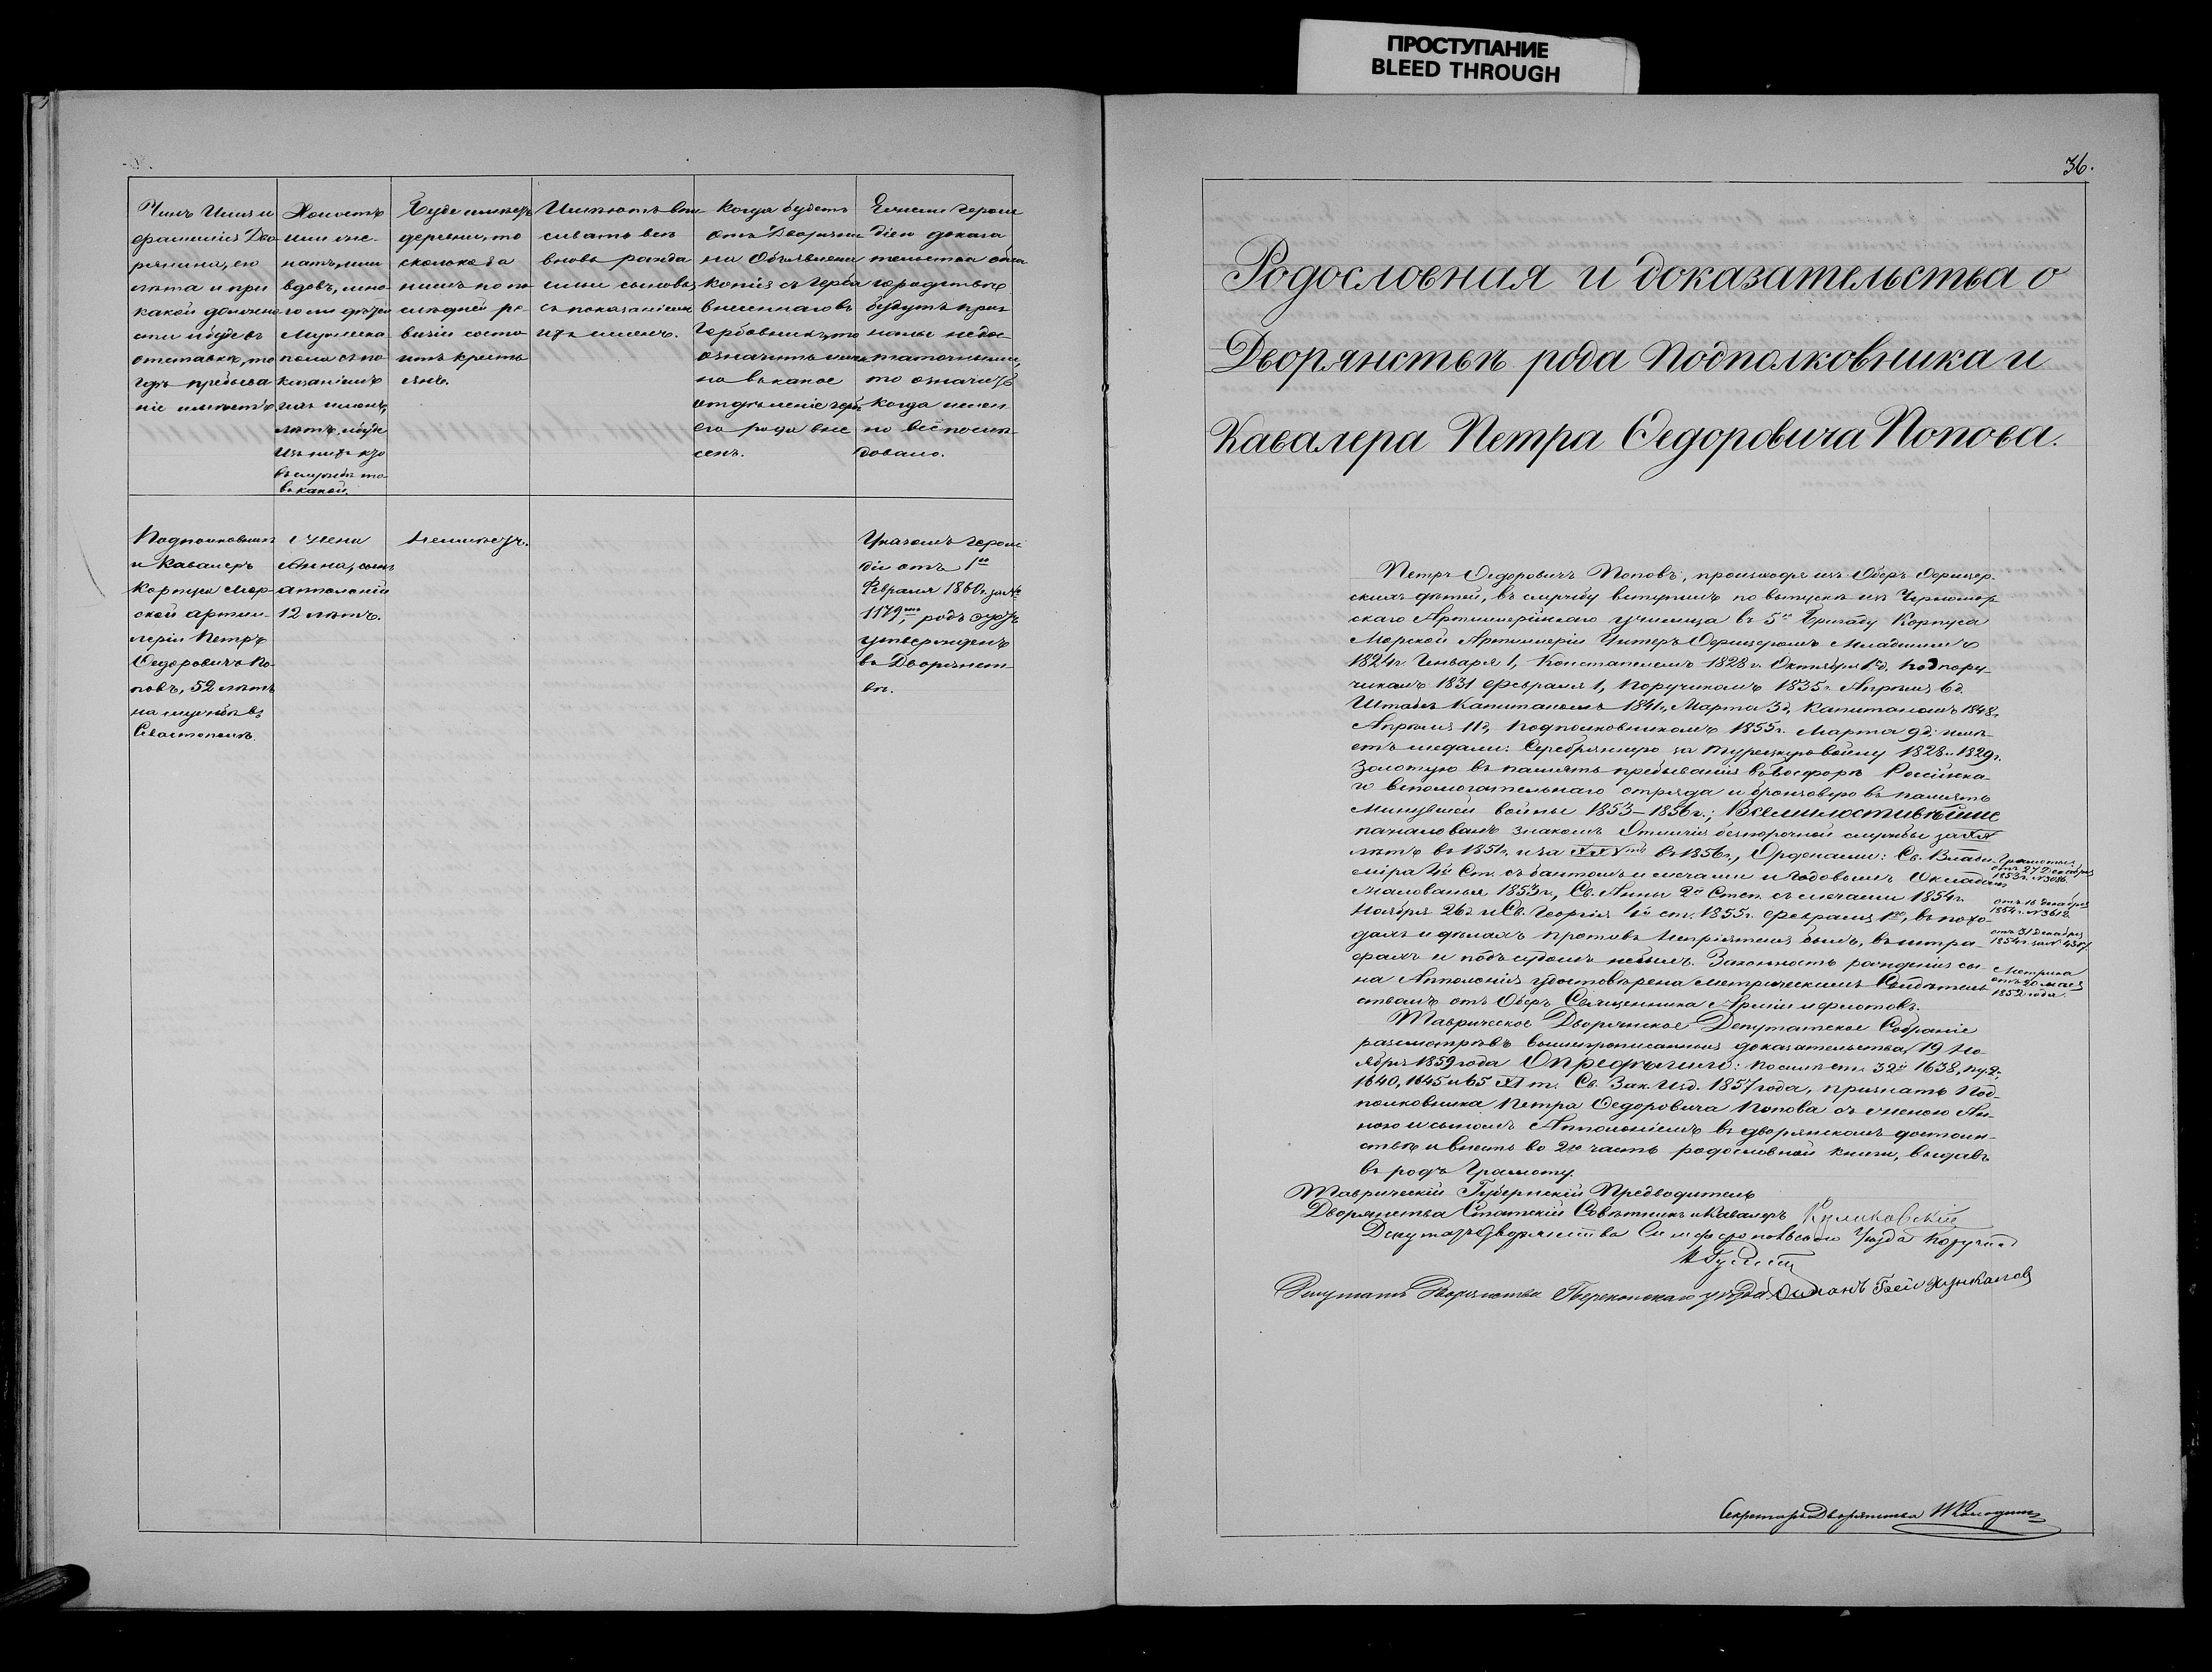 ПРОСТУПАНИЕ
BLEED THROUGH
Чинъ Имя и
фамилія Дво
рянина, его
лѣта и при
какой должно
сти и буде въ
отставкѣ, то
гдѣ пребыва
ніе имѣетъ
Холостъ
или же-
натъ, или
вдовъ, мно
го ли дѣтей
Мужеска
пола съ по
казаніемъ
ихъ именъ,
лѣтъ, и буде
изъ нихъ кто
въ службѣ то
въ какой.
Буде имѣетъ
деревни, то
сколько за
нимъ по по
слѣдней ре
визіи состо
итъ кресть
янъ.
Имѣютъ впи
сивать всѣ
вновь рожда
емые сыновья
съ показаніемъ
ихъ именъ.
Когда будетъ
отъ Дворяни
на Объявлена
копія съ Герба
внесеннаго въ
Гербовникъ, то
означить имян
но въ какое
отдѣленіе гербъ
его рода вне
сенъ.
Ежели Героль
діею доказа
тельства о бла
городствѣ
будутъ приз
наны недос
таточными,
то означить
когда имен
но всё послѣ
довало.
Подполковникъ
и Кавалеръ
Корпуса Мор-
ской артил-
леріи Петръ
Ѳедоровичъ По-
повъ, 52 лѣтъ
на службѣ въ
Севастополѣ.
Жена
Анна, сынъ
Апполоній
12 лѣтъ.
Неимѣетъ.
Указомъ Героль
діи отъ 1го
Февраля 1860 г. за №
1179мъ, родъ этотъ
утвержденъ
въ Дворянст-
вѣ.
36.
Родословная и доказательства о
Дворянствѣ рода Подполковника и
Кавалера Петра Ѳедоровича Попова.
Петръ Ѳедоровичъ Поповъ, происходя изъ Оберъ Офицер-
скихъ дѣтей, въ службу вступилъ по выпускѣ изъ Черномор
скаго Артиллерійскаго училища въ 5ю Бригаду Корпуса
Морской Артиллеріи Унтеръ Офицеромъ Младшимъ
1824 г. Генваря 1, Констапелемъ 1828 г. Октября 1 д. Подпору-
чикомъ 1831 Февраля 1, Поручикомъ 1835 г. Апрѣля 6 д.
Штабсъ Капитаномъ 1841 г. Марта 3 д, Капитаномъ 1848 г.
Апрѣля 11 д, Подполковникомъ 1855 г. Марта 9 д; имѣ-
етъ медали: Серебрянную за Турецкую войну 1828 и 1829 г.
Золотую въ память пребыванія въ Босфорѣ Россійска-
го вспомогательнаго отряда и бронзовую въ память
Минувшей войны 1853-1856 г.; Всемилостивѣйше
пожалованъ знакомъ Отличія безпорочной службы за XX
лѣтъ въ 1851 г. и за XXV тъ въ 1856 г., Орденами: Св. Влади-
міра 4й Ст. съ бантомъ и мечами и годовымъ Окладомъ
жалованья 1853 г., Св. Анны 2й Степ. съ мечами 1854 г.
Ноября 26 д. и Св. Георгія 4й ст. 1855 г. Февраля 1го, въ похо-
дахъ и дѣлахъ противъ Непріятеля былъ, въ штра-
фахъ и подъ судомъ небылъ. Законность рожденія сы-
на Апполонія удостовѣрена Метрическимъ Свидѣтель-
ствомъ отъ Оберъ Священника Арміи и флотовъ.
Грамотыя
отъ 27 Декабря
1853 г. № 3086.
отъ 16 Декабря
1854 г. № 3612.
отъ 31 Декабря
1854 г. за № 4307
Метрика
отъ 20 Мая
1852 года.
Таврическое Дворянское Депутатское Собраніе
разсмотрѣвъ вышепрописанныя доказательства, 19 Но-
ября 1859 года Опредѣлило: по силѣ ст. 32й 1638, пу. 2,
1640, 1645 и 65 XI т. Св. Зак. Изд. 1857 года, признать Под-
полковника Петра Ѳедоровича Попова съ женою Ан-
ною и сыномъ Апполоніемъ въ дворянскомъ достоин-
ствѣ и внесть во 2ю часть родословной книги, выдавъ
въ родъ Грамоту.
Таврическій Губернскій Предводитель
Дворянства Статскій Совѣтникъ и Кавалеръ Куликовскій
Депутатъ Дворянства Симферопольскаго Уѣзда Поручикъ
Депутатъ Дворянства Перекопскаго уѣзда Османъ Бей
Секретарь Дворянства